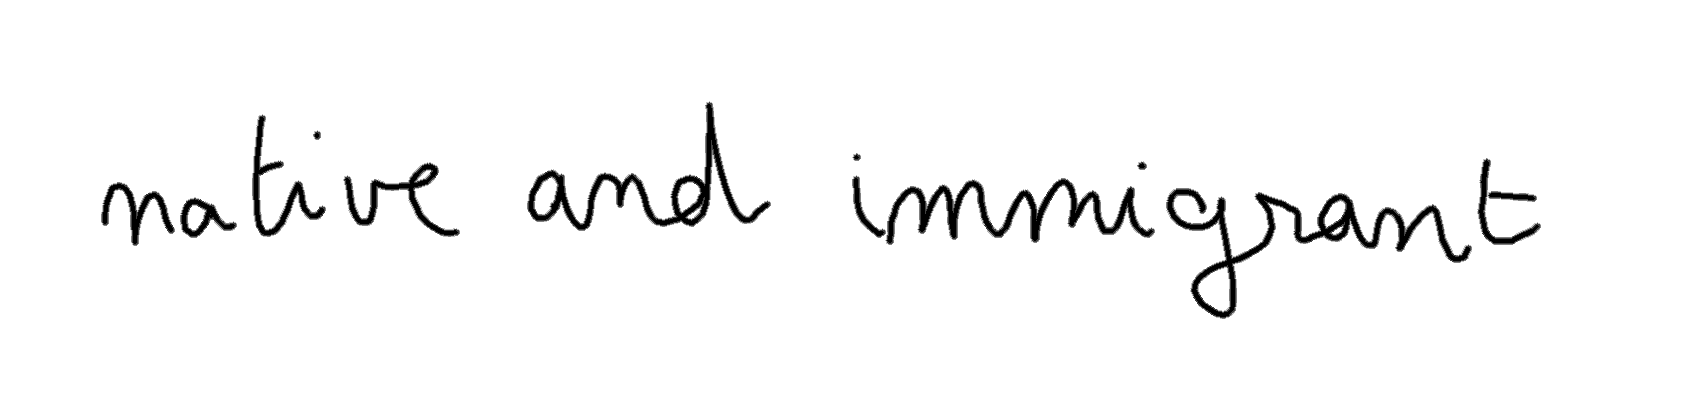 native and immigrant